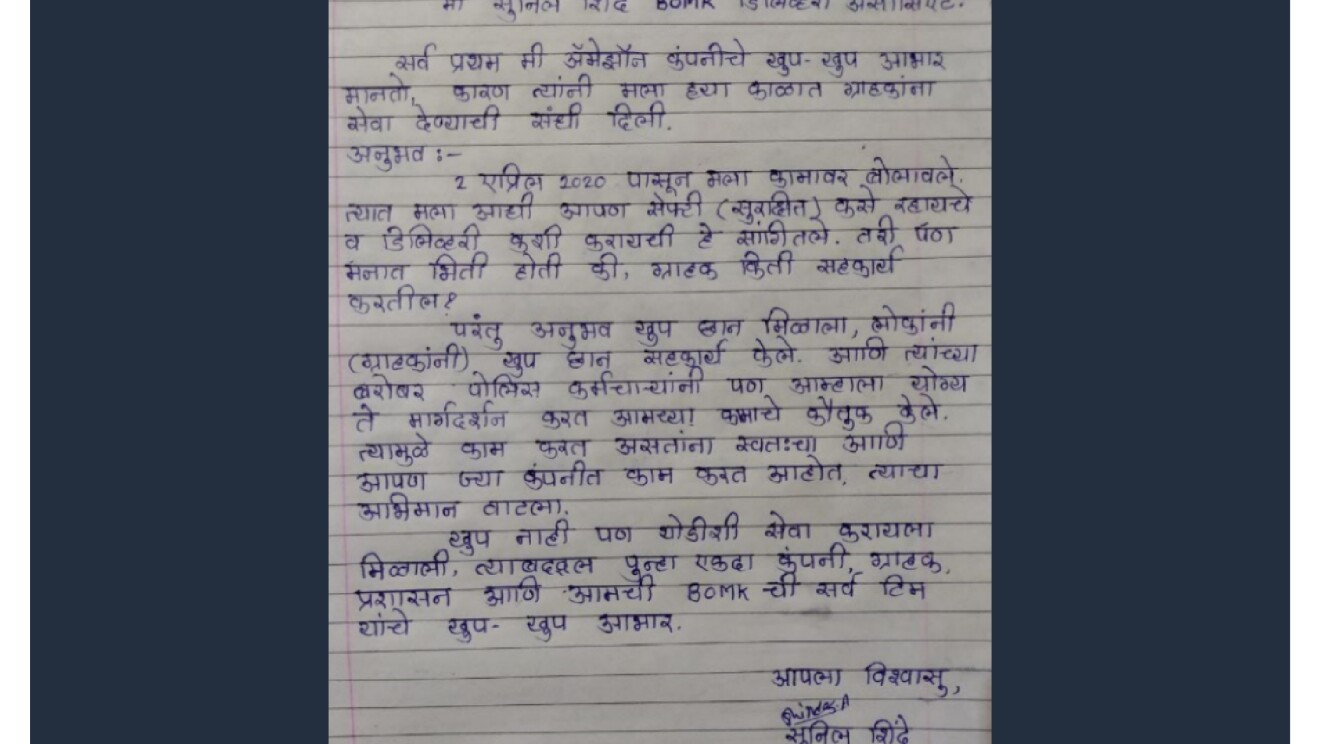 मी सुनिल शिंदे BOMK डिलिव्हरी असोसिएट.
सर्व प्रथम मी ॲमेझॉन कंपनीचे खुप-खुप आभार
मानतो, कारण त्यांनी मला ह्या काळात ग्राहकांना
सेवा देण्याची संधी दिली.
अनुभव :-
2 एप्रिल 2020 पासून मला कामावर बोलावले.
त्यात मला आधी आपण सेफ्टी (सुरक्षित) कसे रहायचे
व डिलिव्हरी कशी करायची हे सांगितले. तरी पण
मनात भिती होती की, ग्राहक किती सहकार्य
करतील?
परंतु अनुभव खुप छान मिळाला, लोकांनी
(ग्राहकांनी) खुप छान सहकार्य केले. आणि त्यांच्या
बरोबर पोलिस कर्मचाऱ्यांनी पण आम्हाला योग्य
ते मार्गदर्शन करत आमच्या कमाचे कौतुक केले.
त्यामुळे काम करत असतांना स्वतःचा आणि
आपण ज्या कंपनीत काम करत आहोत, त्याचा
अभिमान वाटला.
खुप नाही पण थोडीशी सेवा करायला
मिळाली, त्याबद्दल पुन्हा एकदा कंपनी, ग्राहक,
प्रशासन आणि आमची BOMK ची सर्व टिम
यांचे खुप-खुप आभार.
आपला विश्वासु,
सुनिल शिंदे